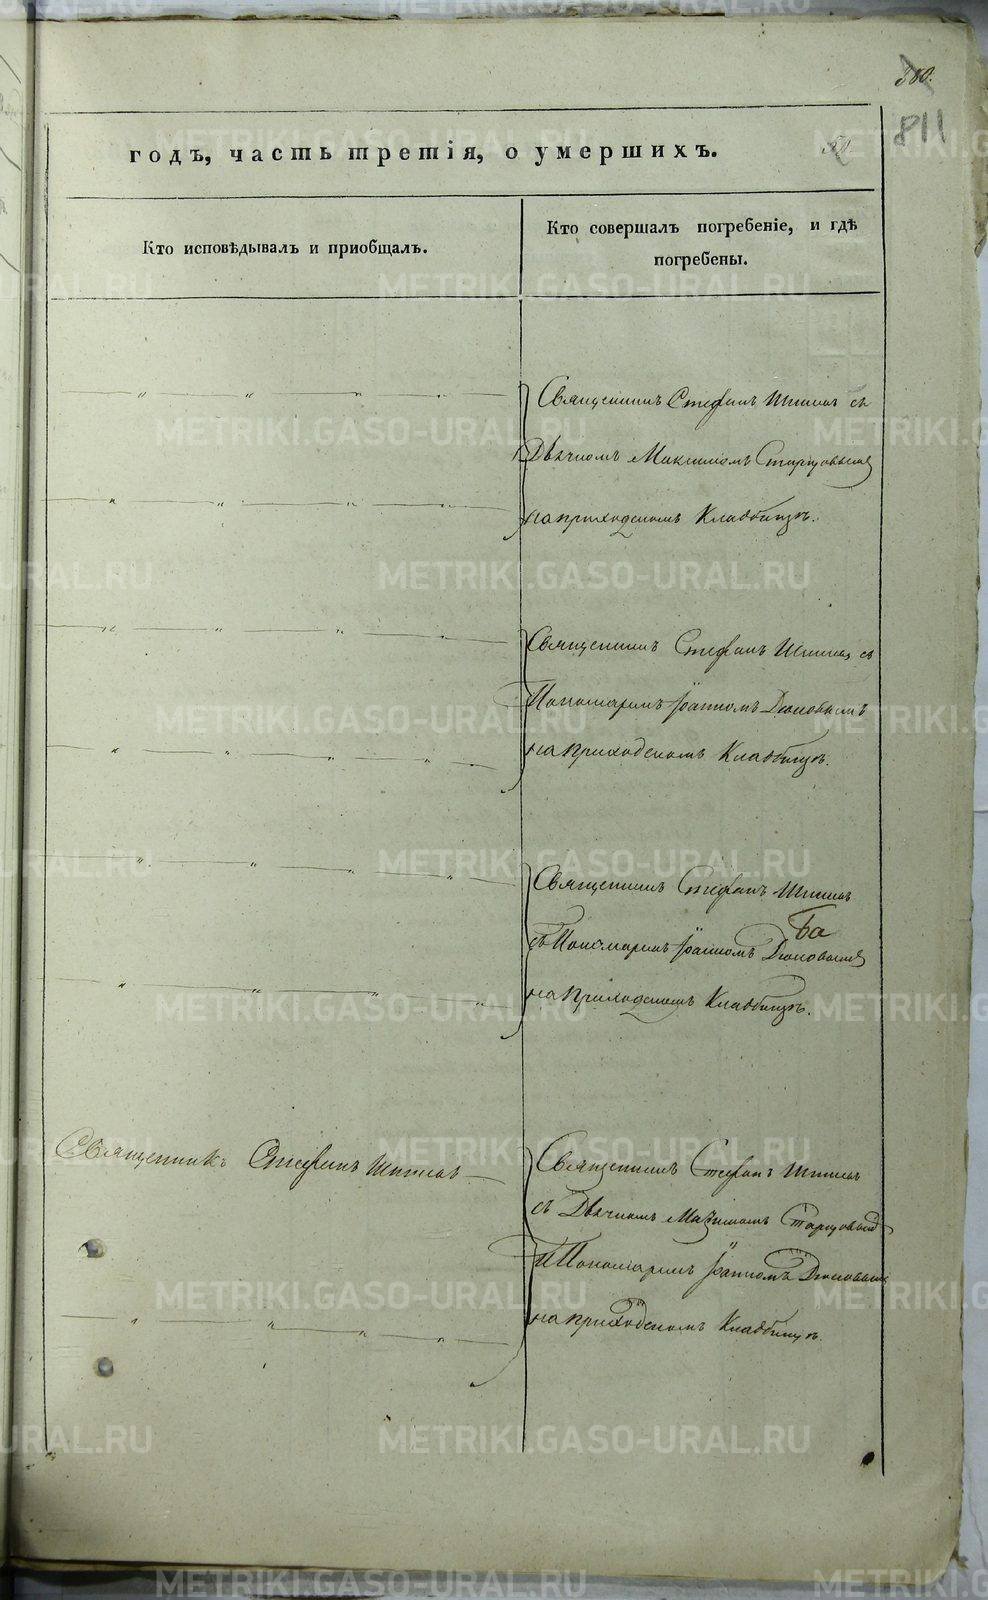 380.
811
годъ, часть третія, о умершихъ.
Кто исповѣдывалъ и приобщалъ.
Кто совершалъ погребеніе, и гдѣ
погребены.
Священникъ Стефанъ съ
Дьячкомъ Максимомъ Старцовымъ
на приходскомъ Кладбищѣ.
Священникъ Стефанъ съ
Пономаремъ Іоанномъ Дюковымъ
на приходскомъ Кладбищѣ.
Священникъ Стефанъ
съ Пономаремъ Іоанномъ Дюковымъ
на приходскомъ Кладбищѣ.
Священникъ Стефанъ
Священникъ Стефанъ
съ Дьячкомъ Максимомъ Старцовымъ
и Пономаремъ Іоанномъ Дюковымъ
на приходскомъ Кладбищѣ.
METRIKI.GASO-URAL.RU